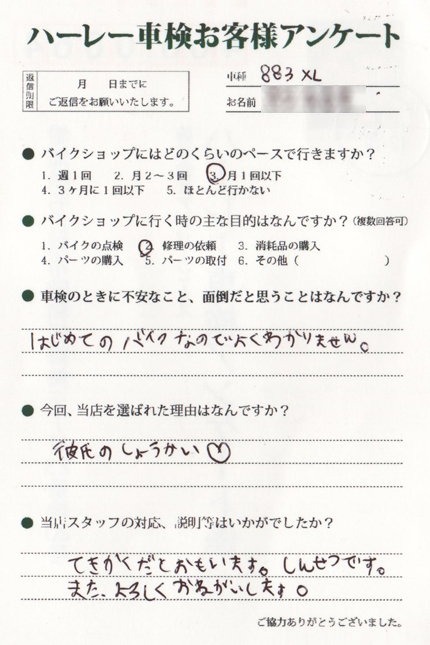 ハーレー車検お客様アンケート
返信期限
月 日までに
ご返信をお願いいたします。
車種 883 XL
お名前
● バイクショップにはどのくらいのペースで行きますか？
1. 週1回 2. 月2～3回 3. 月1回以下
4. 3ヶ月に1回以下 5. ほとんど行かない
● バイクショップに行く時の主な目的はなんですか？(複数回答可)
1. バイクの点検 2. 修理の依頼 3. 消耗品の購入
4. パーツの購入 5. パーツの取付 6. その他（ ）
● 車検のときに不安なこと、面倒だと思うことはなんですか？
はじめてのバイクなのでよくわかりません。
● 今回、当店を選ばれた理由はなんですか？
彼氏のしょうかい♡
● 当店スタッフの対応、説明等はいかがでしたか？
てきかくだとおもいます。しんせつです。
また、よろしくおねがいします。
ご協力ありがとうございました。